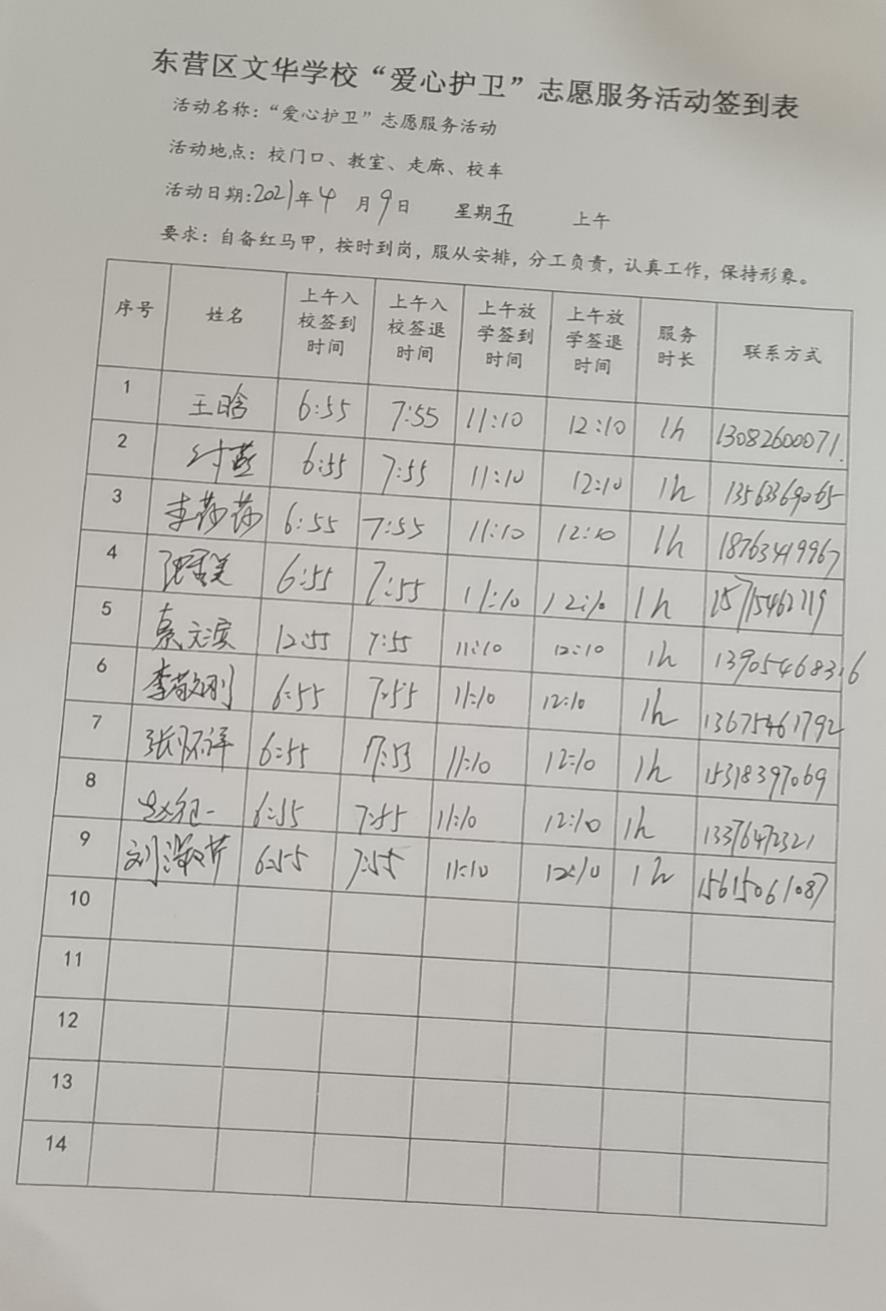 东营区文华学校“爱心护卫”志愿服务活动签到表
活动名称：“爱心护卫”志愿服务活动
活动地点：校门口、教室、走廊、校车
活动日期：2021年4月9日 星期五 上午
要求：自备红马甲，按时到岗，服从安排，分工负责，认真工作，保持形象。
序号 姓名 上午入校签到时间 上午入校签退时间 上午放学签到时间 上午放学签退时间 服务时长 联系方式
1 王晗 6:55 7:55 11:10 12:10 1h 13082600071.
2 付燕 6:55 7:55 11:10 12:10 1h 13563369065
3 李莎莎 6:55 7:55 11:10 12:10 1h 18763419967
4 6:55 7:55 11:10 12:10 1h 15715462119
5 秦文滨 12:55 7:55 11:10 12:10 1h 13905468316
6 李敬刚 6:55 7:55 11:10 12:10 1h 13675461792
7 张怀译 6:55 7:55 11:10 12:10 1h 15318397069
8 6:55 7:55 11:10 12:10 1h 13376472321
9 刘淑芹 6:55 7:55 11:10 12:10 1h 15615061087
10
11
12
13
14